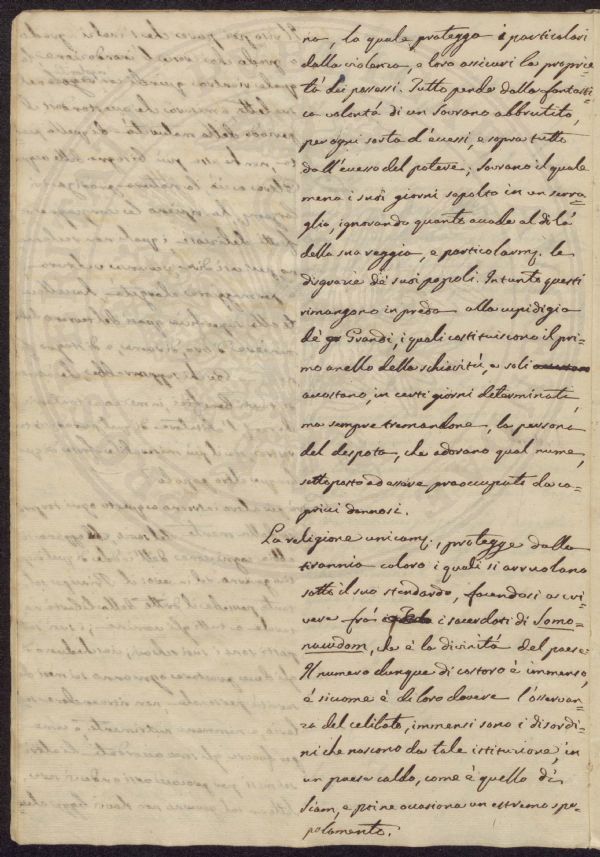 na, la quale protegga i particolari
dalla violenza, e loro assicuri la proprie=
tá dei possessi. Tutto pende dalla fantasti=
ca volontá di un Sovrano abbrutito,
per ogni sorta d'eccessi, e sopra tutto
dall'eccesso del potere; Sovrano il quale
mena i suoi giorni sepolto in un serra=
glio, ignorando quanto accade al di lá
della sua reggia, e particolarmj. le
disgrazie de' suoi popoli. Intanto questi
rimangono in preda alla cupidigia
de' Grandi, i quali costituiscono il pri=
mo anello della schiavitú, e soli
accostano, in certi giorni determinati,
ma sempre tremandone, la persona
del despota, che adorano qual nume,
sottoposto ad essere preoccupato da ca=
pricci dannosi.
La religione unicamj., protegge dalla
tirannia coloro i quali si arruolano
sotto il suo stendardo, facendosi ascri=
vere frá i sacerdoti di Somo=
nacodom, che é la divinitá del paese.
Il numero dunque di costoro é immenso,
é siccome é di loro dovere l'osservan=
za del celibato, immensi sono i disordi=
ni che nascono da tale istituzione, in
un paese caldo, come é quello di
Siam, e poi ne occasiona un estremo spo=
polamento.